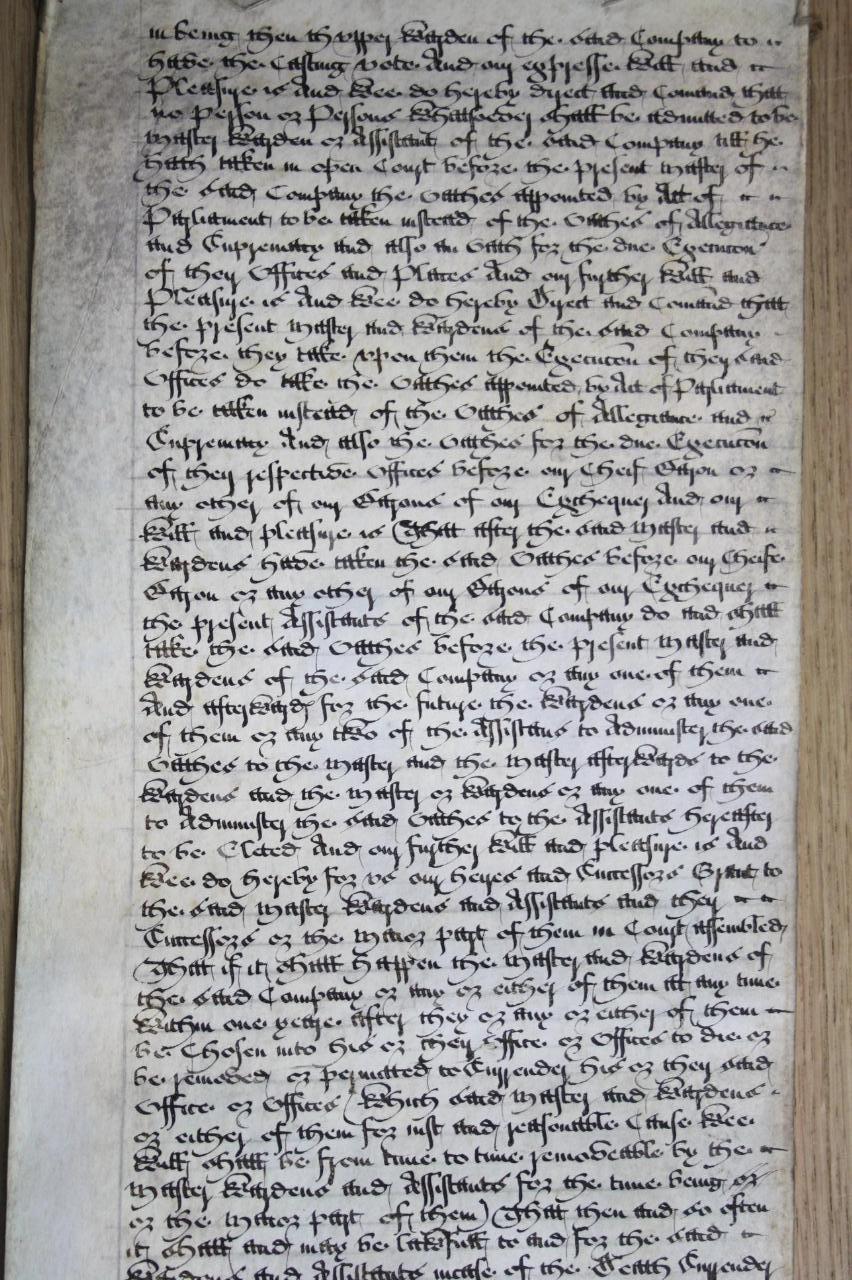 in being then th upper Warden of the said Company to
have the Casting vote And our expresse Will and
Pleasure is And Wee do hereby direct and Comand that
no Person or Persons Whatsoever shall be admitted to be
Master Warden or Assistant of the said Company till he
hath taken in open Court before the present Master of
the said Company the Oathes appointed by Act of
Parliament to be taken instead of the Oathes of Allegiance
and Supremacy and also an Oath for the due Execucon
of their Offices and Places And our further Will and
Pleasure is And Wee do hereby Direct and Comand that
the present Master and Wardens of the said Company
before they take upon them the Execucon of their said
Offices do take the Oathes appointed by Act of Parliament
to be taken instead of the Oathes of Allegiance and
Supremacy And also the Oathes for the due Execucon
of their respective Offices before our Cheif Baron or
any other of our Barons of our Exchequer And our
Will and pleasure is That after the said Master and
Wardens have taken the said Oathes before our Cheife
Baron or any other of our Barons of our Exchequer
the present Assistants of the said Company do and shall
take the said Oathes before the present Master and
Wardens of the said Company or any one of them
And afterward for the future the Wardens or any one
of them or any two of the Assistans to Administer the said
Oathes to the Master and the Master afterwards to the
Wardens and the Master or Wardens or any one of them
to Administer the said Oathes to the Assistants hereafter
to be Elected And our further Will and pleasure is And
Wee do hereby for us our heires and Successors Grant to
the said Master Wardens and Assistants and their
Successors or the Maior part of them in Court assembled
That if it shall happen the Master and Wardens of
the said Company or any or either of them at any time
within one yeare after they or any or either of them
be Chosen into his or their Office or Offices to die or
be removed or permitted to Surrender his or their said
Office or Offices (Which said Master and Wardens
or either of them for iust and reasonable Cause Wee
Will shall be from time to time removeable by the
Master Wardens and Assistants for the time being or
or the Maior part of them) That then and so often
it shall and may be lawfull to and for the said
Wardens and Assistants incase of the Death Surrender